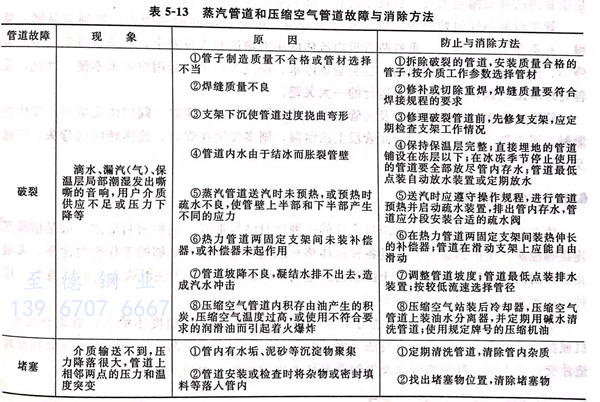 表 5-13 蒸汽管道和压缩空气管道故障与消除方法
管道故障 现 象 原 因 防止与消除方法
破裂
滴水、漏汽(气)、保
温层局部潮湿发出嘶
嘶的音响,用户介质
供应不足或压力下
降等
①管子制造质量不合格或管材选择
不当
①拆除破裂的管道,安装质量合格的
管子,按介质工作参数选择管材
②焊缝质量不良
②修补或切除重焊,焊缝质量要符合
焊接规程的要求
③支架下沉使管道过度挠曲弯形
③修理破裂管道前,先修复支架,应定
期检查支架工作情况
④管道内水由于结冰而胀裂管壁
④保持保温层完整;直接埋地的管道
铺设在冻层以下;在冰冻季节停止使用
的管道要全部放尽管内存水;管道最低
点装自动放水装置或定期放水
⑤蒸汽管道送汽时未预热,或预热时
疏水不良,使管壁上半部和下半部产生
不同的应力
⑤送汽时应遵守操作规程,进行管道
预热并启动疏水装置,排出管内存水,管
道应分段安装合适的疏水阀
⑥热力管道两固定支架间未装补偿
器,或补偿器未起作用
⑥在热力管道两固定支架间装热伸长
的补偿器;管道在滑动支架上应能自由
滑动
⑦管道坡降不良,凝结水排不出去,造
成汽水冲击
⑦调整管道坡度;管道最低点装排水
装置;按较低流速选择管径
⑧压缩空气管道内积存由油产生的积
炭,压缩空气温度过高,或使用不符合要
求的润滑油而引起着火爆炸
⑧压缩空气站装后冷却器,压缩空气
管道上装油水分离器,并定期用碱水清
洗管道;使用规定牌号的压缩机油
堵塞
介质输送不到,压
力降落很大,管道上
相邻两点的压力和温
度突变
①管内有水垢、泥砂等沉淀物聚集
①定期清洗管道,清除管内杂质
②管道安装或检查时将杂物或密封填
料等落入管内
②找出堵塞物位置,清除堵塞物
至德钢业
139 6707 6667